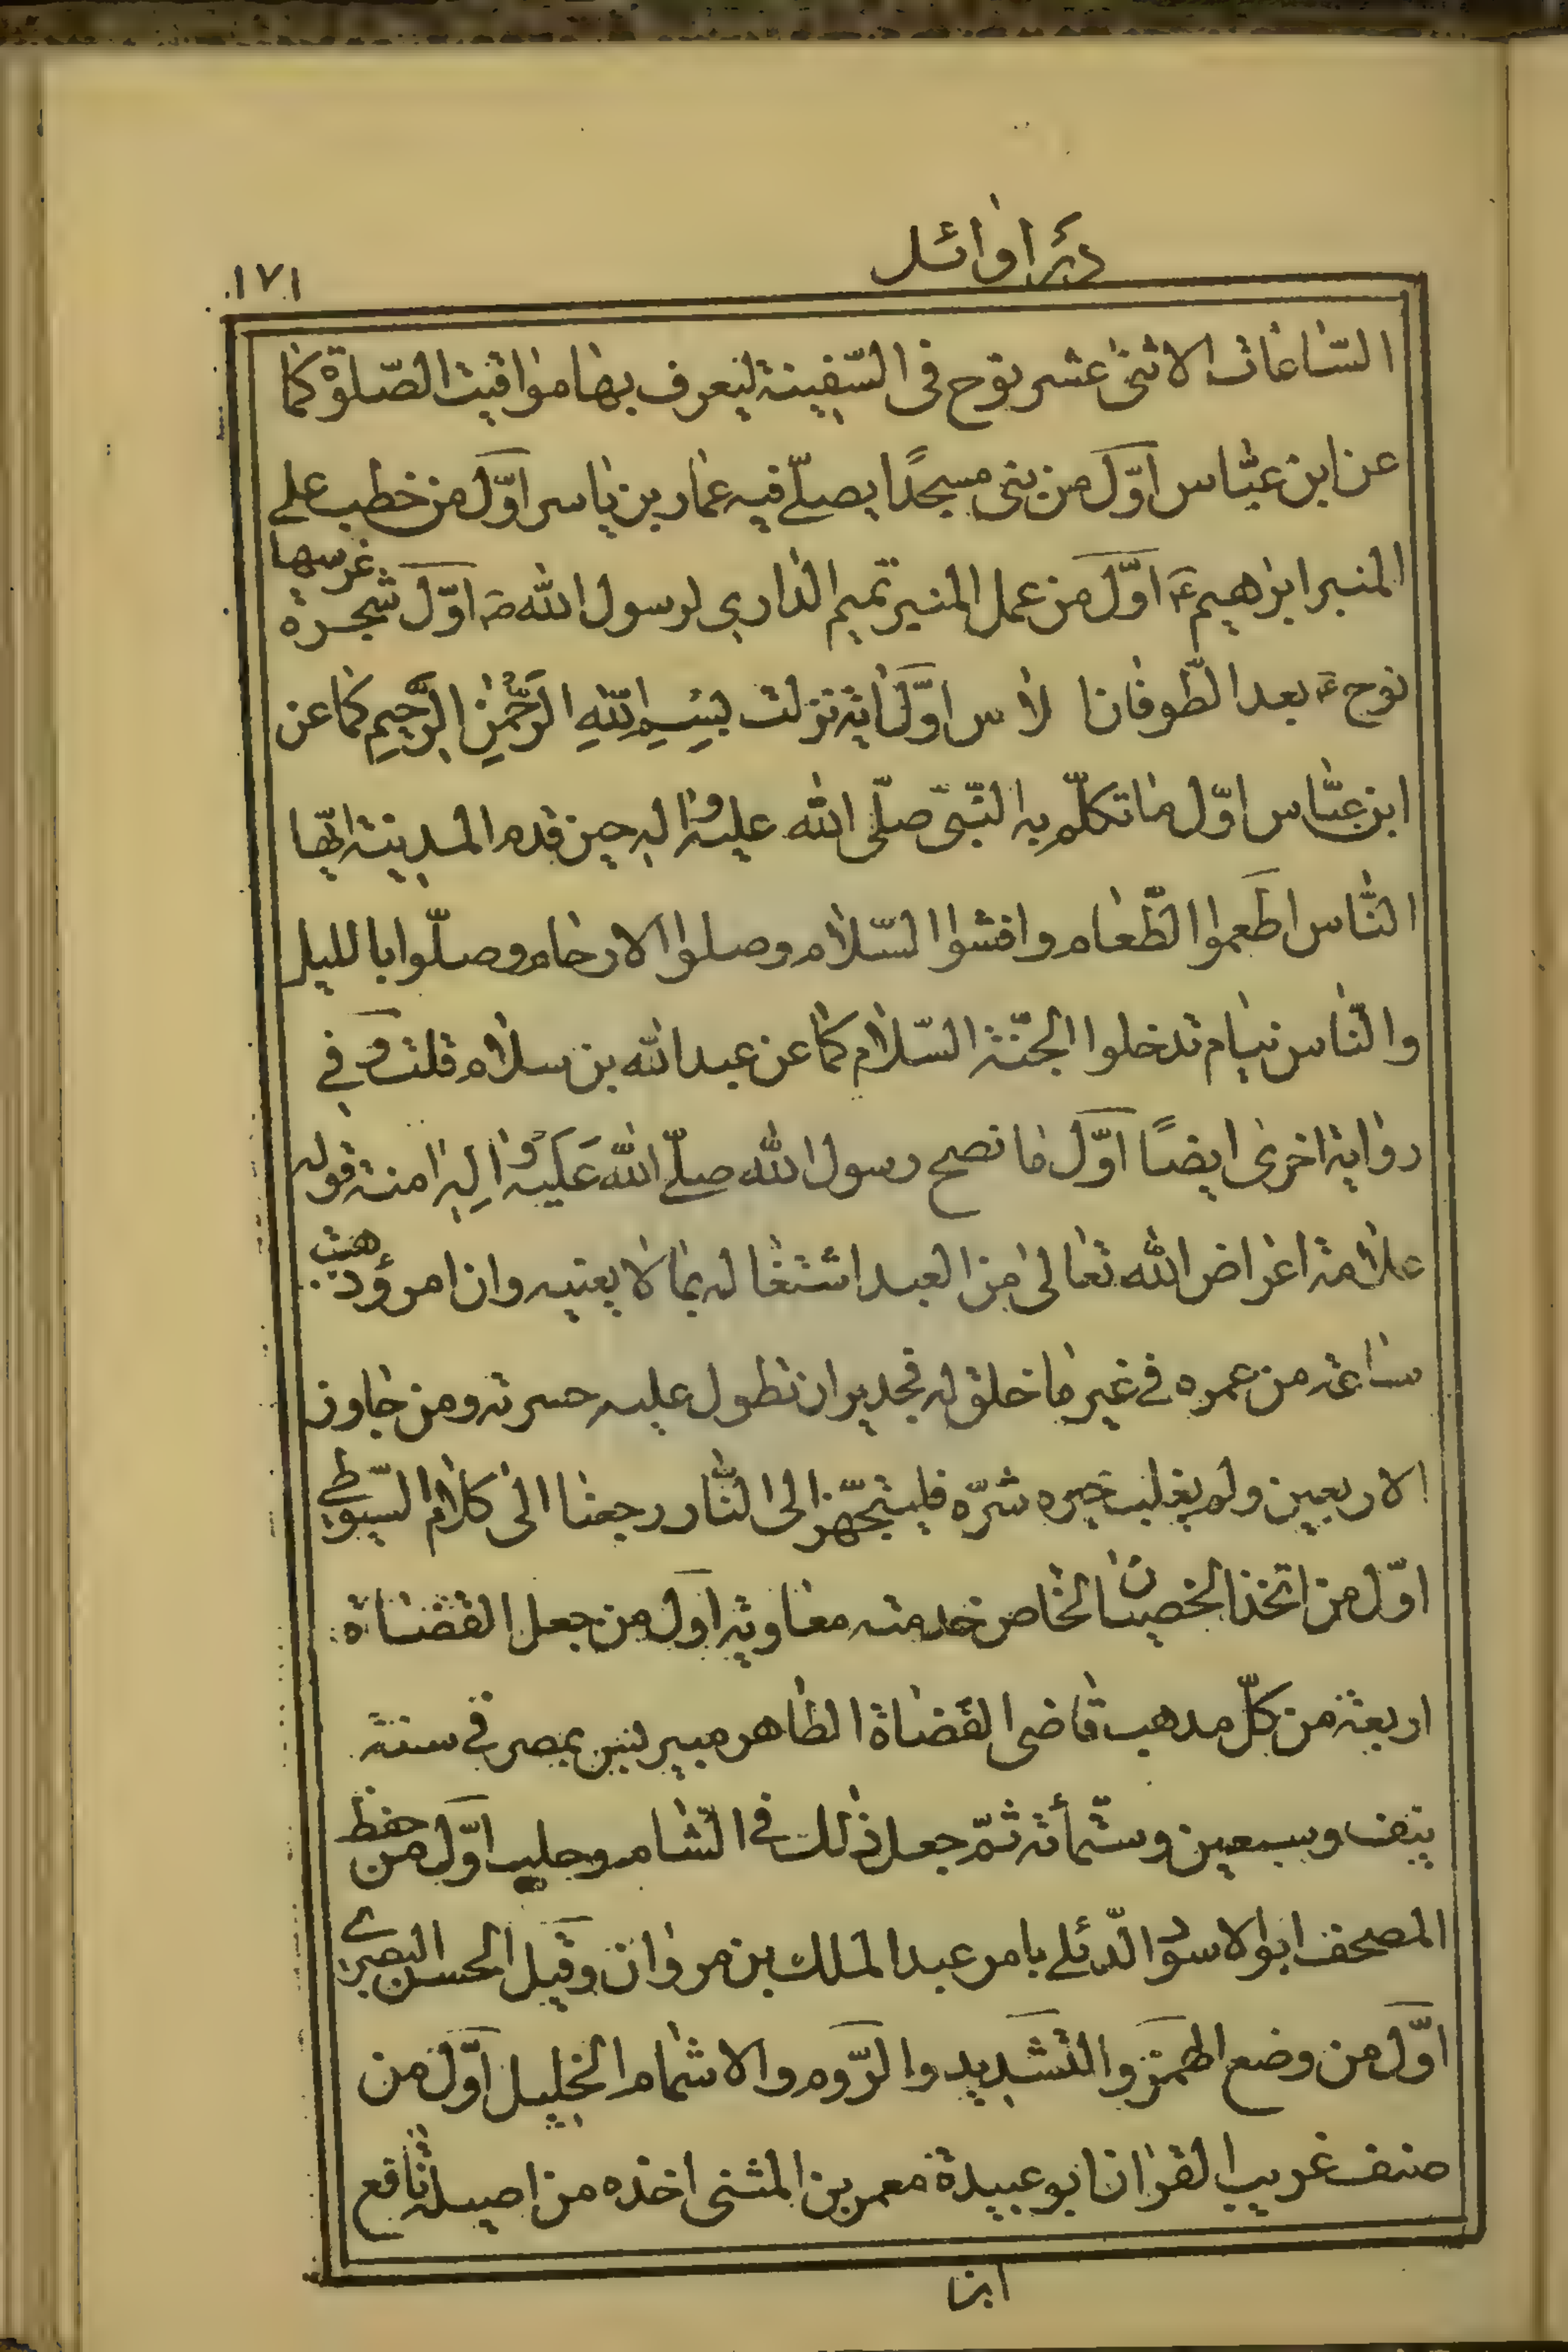 در اوائل
١٧١
السّاعات الاثنى عشر نوح فى السّفينة ليعرف بها مواقيت الصّلوة كما
عن ابن عبّاس اوّل من بنى مسجدًا يصلّے فيه عمار بن ياسر اوّل من خطب علے
المنبر ابرهيم ع اوّل من عمل المنبر تميم الدارى لرسول الله ص اوّل شجرة غرسها
نوح ع بعد الطّوفان الاس اوّل اية نزلت بِسْمِ اللّهِ الرَّحْمٰنِ الرَّحِيمِ كما عن
ابن عبّاس اوّل ما تكلّم به النّبىّ صلّى الله عليه واله حين قدم المدينة ايّها
النّاس اطعموا الطّعام وافشوا السّلام وصلوا الارحام وصلّوا بالليل
والنّاس نيام تدخلوا الجنّة السّلام كما عن عبد الله بن سلام قلت و فے
رواية اخرى ايضًا اوّل ما نصح رسول الله صلّے الله عَلَيْه واله امته قوله
علامة اعراض الله تعالى من العبد اشتغاله بما لا يعنيه وان امرؤ ذهبت
ساعة من عمره فے غير ما خلق له فجدير ان تطول عليه حسرته ومن جاوز
الاربعين ولم يغلب خيره شرّه فليتجهّز الى النّار رجعنا الى كلام السّيوطے
اوّل من اتخذ الخصيان لخاص خدمته معاوية اوّل من جعل القضاة
اربعة من كلّ مذهب قاضى القضاة الظاهر بيبرس بمصر فى سنة
نيف وسبعين وستّمأئة ثمّ جعل ذلك فے الشام وحلب اوّل من حفظ
المصحف ابو الاسود الدّئلے بامر عبد الملك بن مروان وقيل الحسن البصرے
اوّل من وضع الهمز والتشديد والرّوم والاشمام الخليل اوّل من
صنف غريب القران ابو عبيدة معمر بن المثنى اخذه من اصيلة نافع
ابن